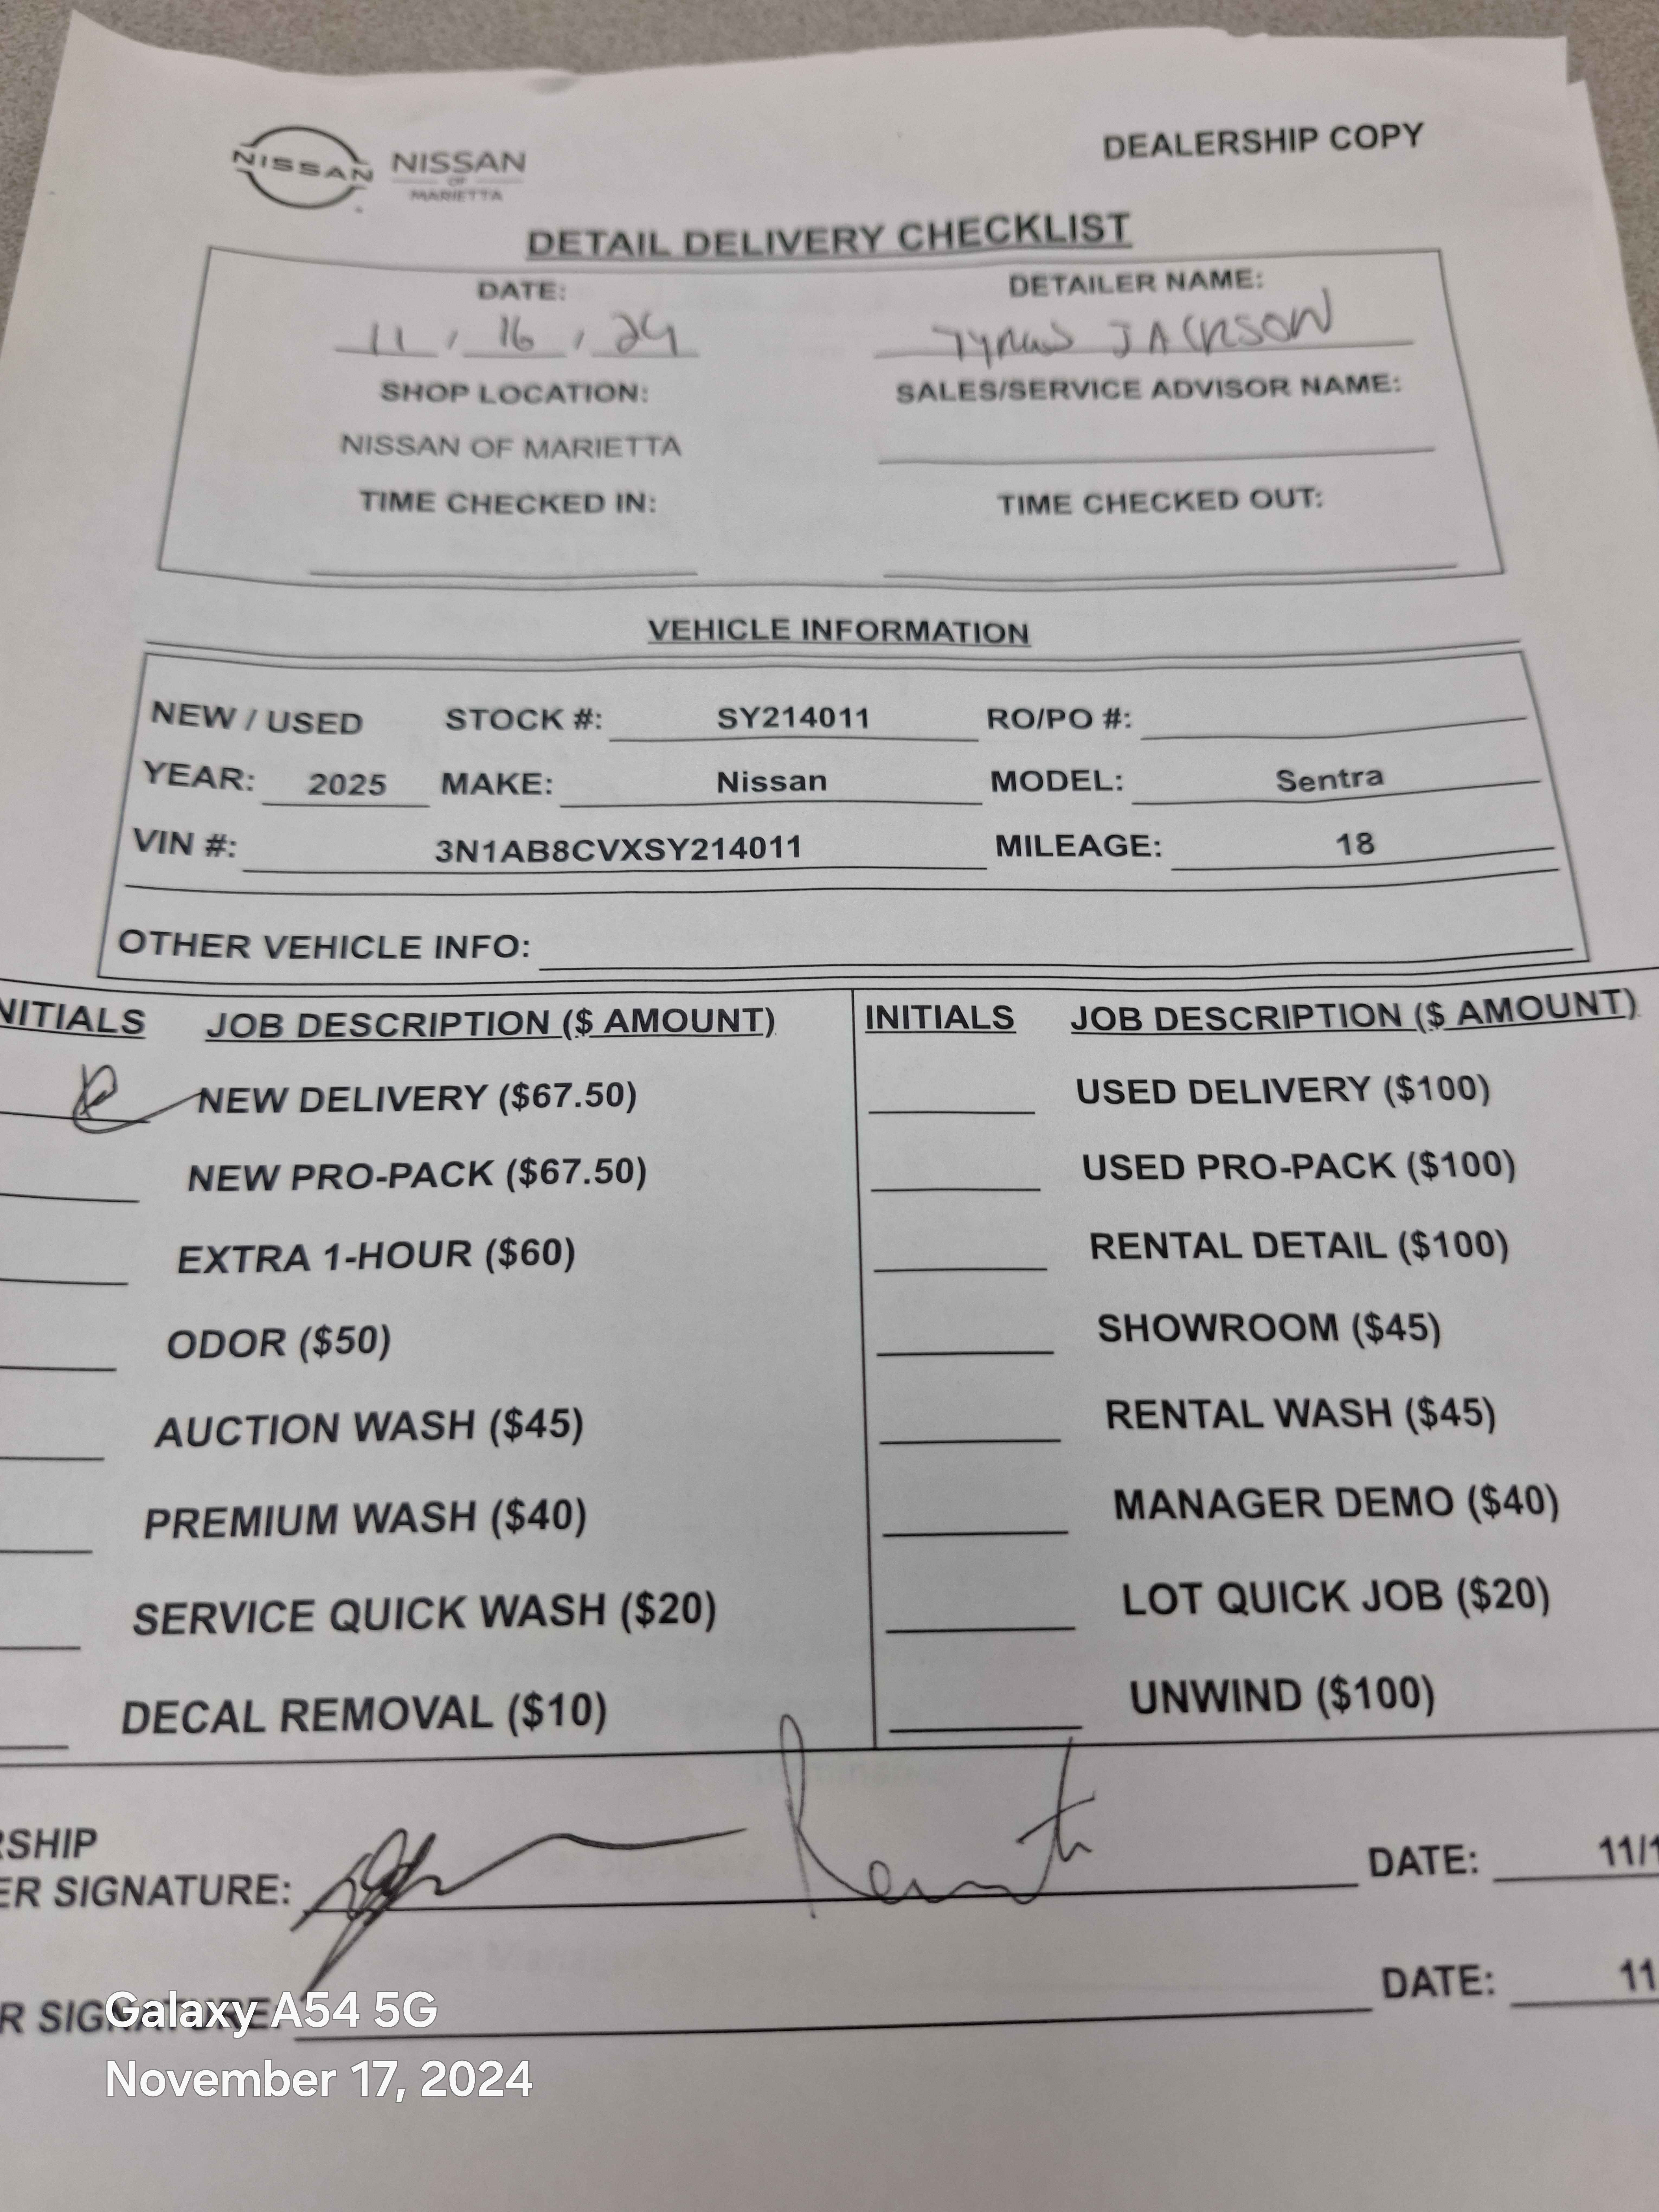 NISSAN NISSAN
OF
MARIETTA
DEALERSHIP COPY
DETAIL DELIVERY CHECKLIST
DATE: DETAILER NAME:
11 / 16 / 24 JACKSON
SHOP LOCATION: SALES/SERVICE ADVISOR NAME:
NISSAN OF MARIETTA
TIME CHECKED IN: TIME CHECKED OUT:
VEHICLE INFORMATION
NEW / USED STOCK #: SY214011 RO/PO #:
YEAR: 2025 MAKE: Nissan MODEL: Sentra
VIN #: 3N1AB8CVXSY214011 MILEAGE: 18
OTHER VEHICLE INFO:
NITIALS JOB DESCRIPTION ($ AMOUNT) INITIALS JOB DESCRIPTION ($ AMOUNT)
NEW DELIVERY ($67.50) USED DELIVERY ($100)
NEW PRO-PACK ($67.50) USED PRO-PACK ($100)
EXTRA 1-HOUR ($60) RENTAL DETAIL ($100)
ODOR ($50) SHOWROOM ($45)
AUCTION WASH ($45) RENTAL WASH ($45)
PREMIUM WASH ($40) MANAGER DEMO ($40)
SERVICE QUICK WASH ($20) LOT QUICK JOB ($20)
DECAL REMOVAL ($10) UNWIND ($100)
RSHIP
ER SIGNATURE: DATE: 11/1
R SIGNATURE: DATE: 11
Galaxy A54 5G
November 17, 2024